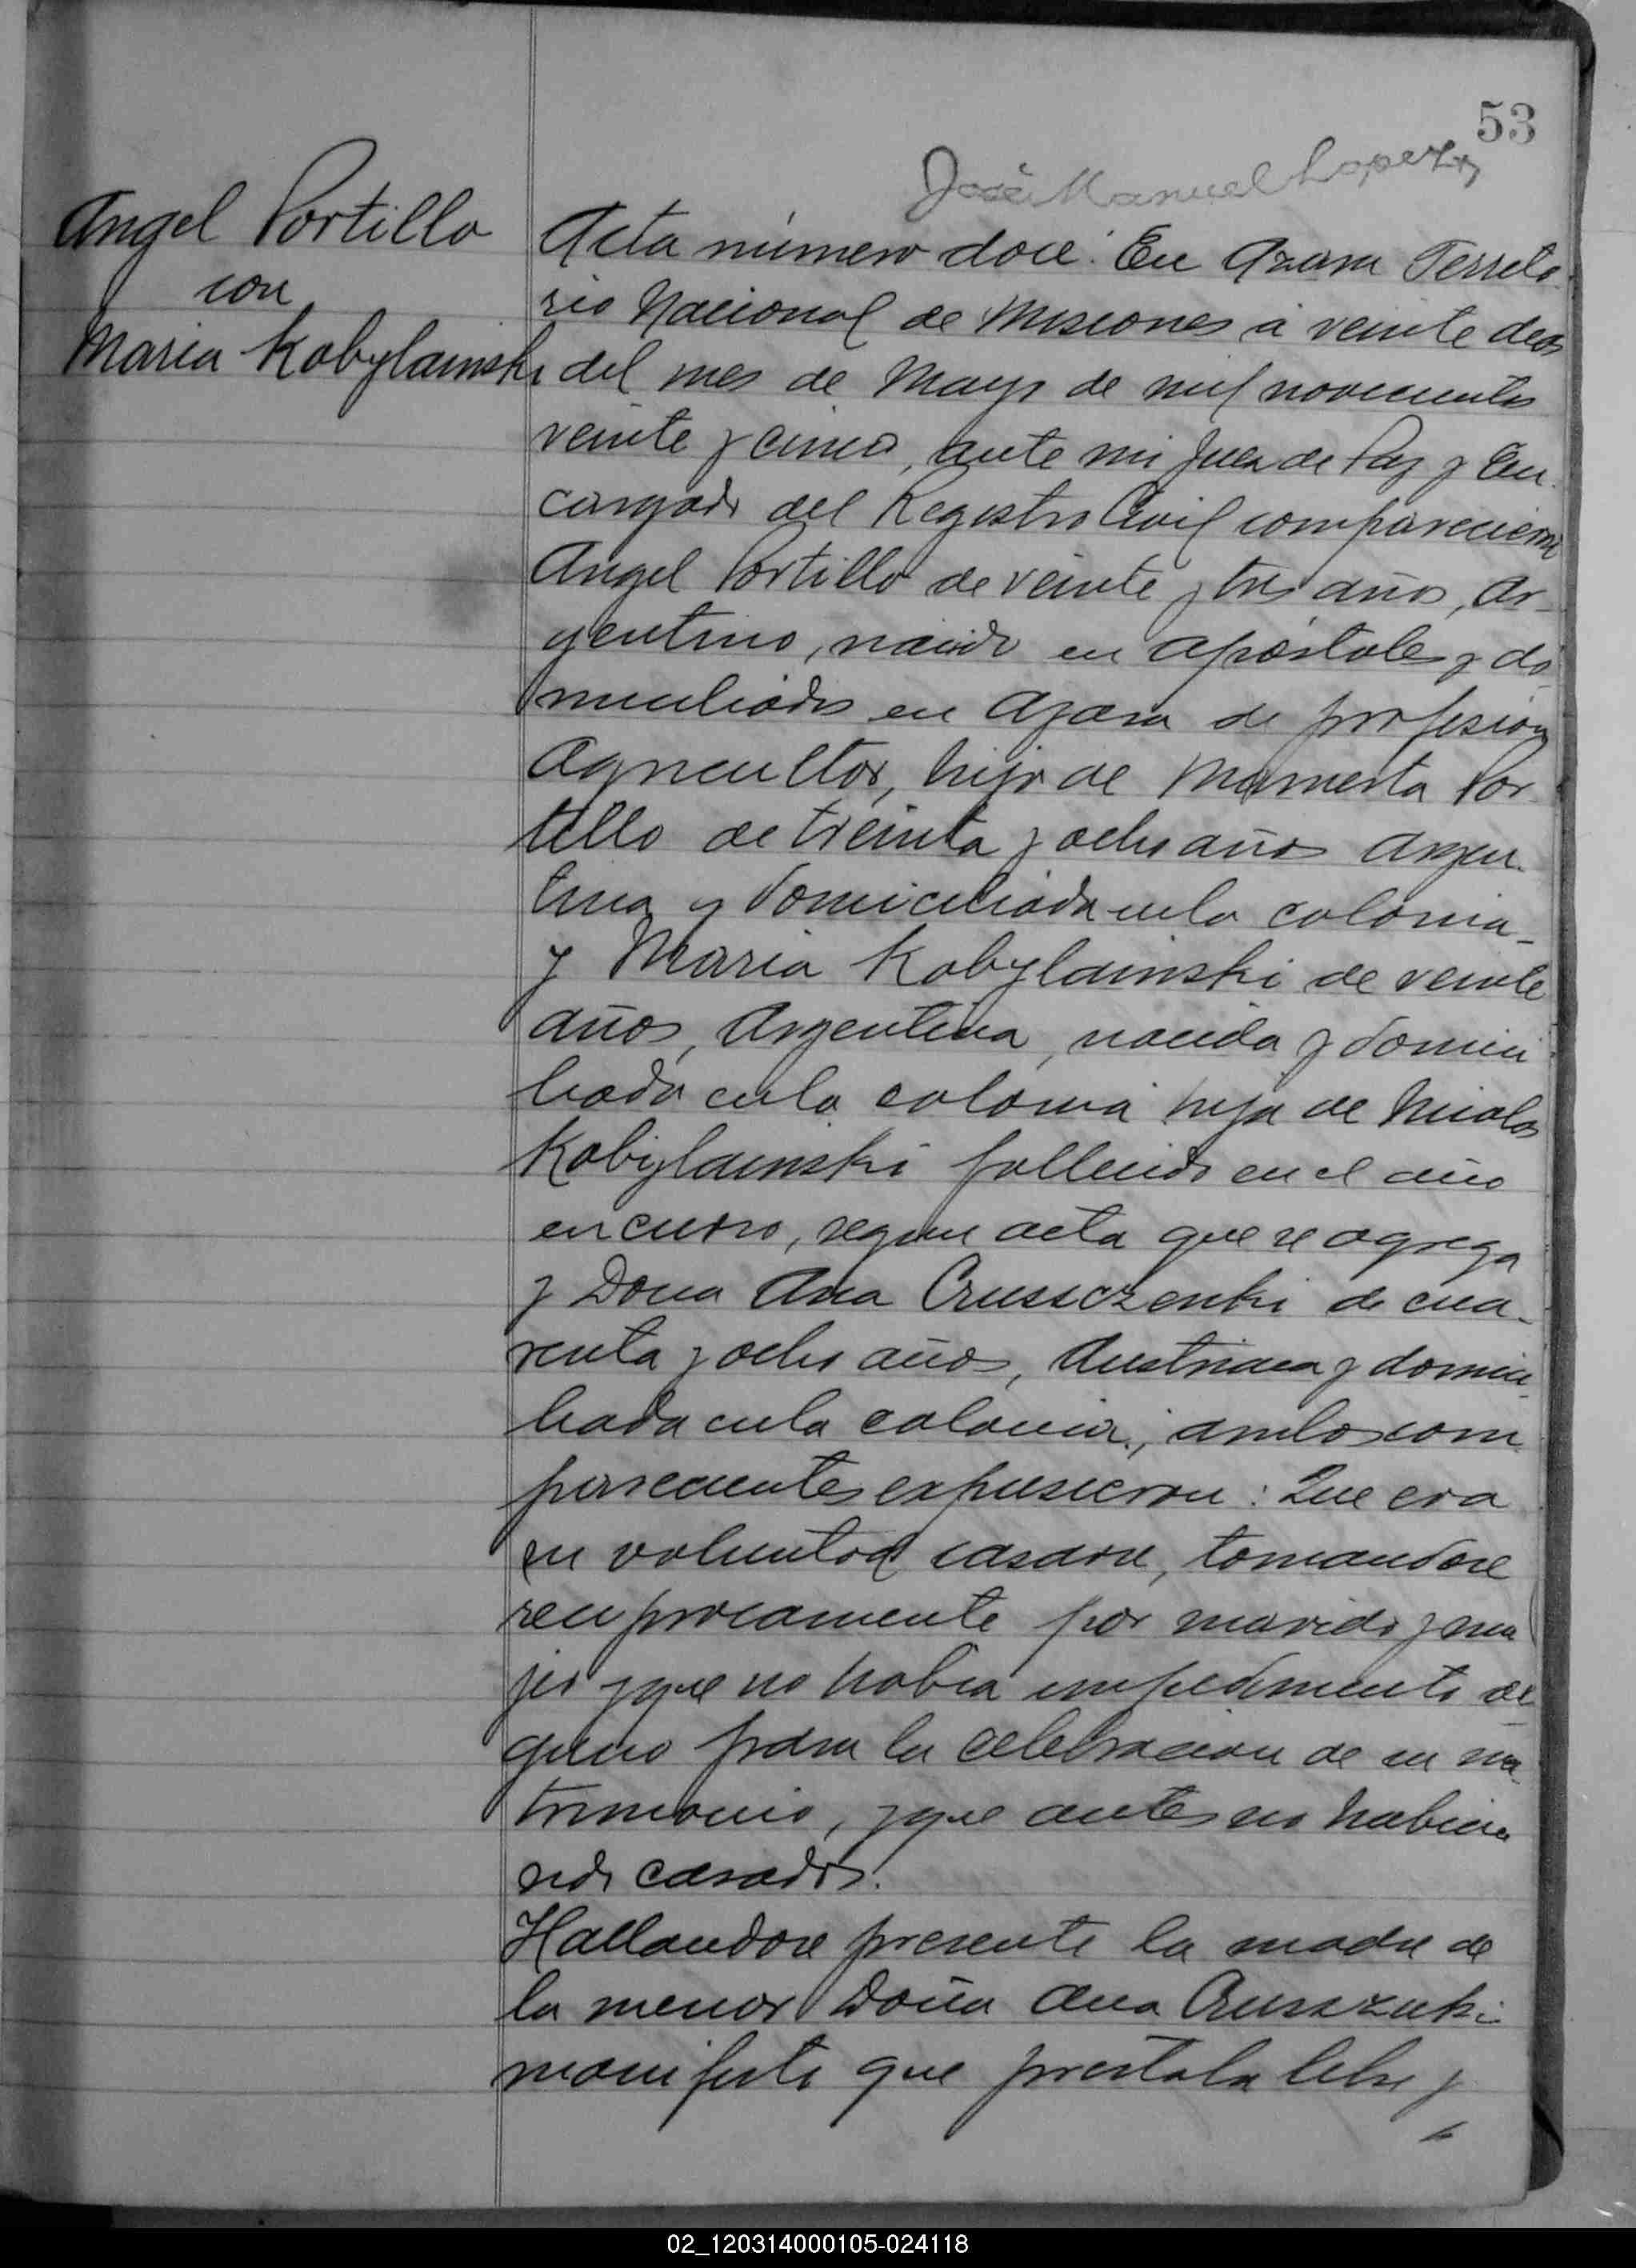 53
José Manuel Lopez
Angel Portillo
con
Maria Kobylainski
Acta número doce. En Azara Territo-
rio Nacional de Misiones á veinte dias
del mes de Mayo de mil novecientos
veinte y cinco, ante mi Juez de Paz y En-
cargado del Registro Civil comparecieron
Angel Portillo de veinte y tres años, Ar-
gentino, nacido en Apóstoles y do
miciliado en Azara de profesión
Agricultor, hijo de Mamerta Por-
tillo de treinta y ocho años Argen-
tina y domiciliada en la colonia-
y Maria Kobylainski de veinte
años, Argentina, nacida y domici
liada en la colonia hija de Nicolas
Kobylainski fallecido en el año
en curso, segun acta que se agrega
y Dona Ana Crussczenki de cua-
renta y ocho años, Austriaca y domici-
liada en la colonia; ambos com
parecientes expusieron: Que era
su voluntad casarse, tomandose
reciprocamente por marido y mu
jer y que no habia impedimento al
guno para la celebracion de su ma-
trimonio, y que antes no habian
sido casados.
Hallandose presente la madre de
la menor Doña Ana Crusszenki
manifesto que prestaba libre y
02_120314000105-024118